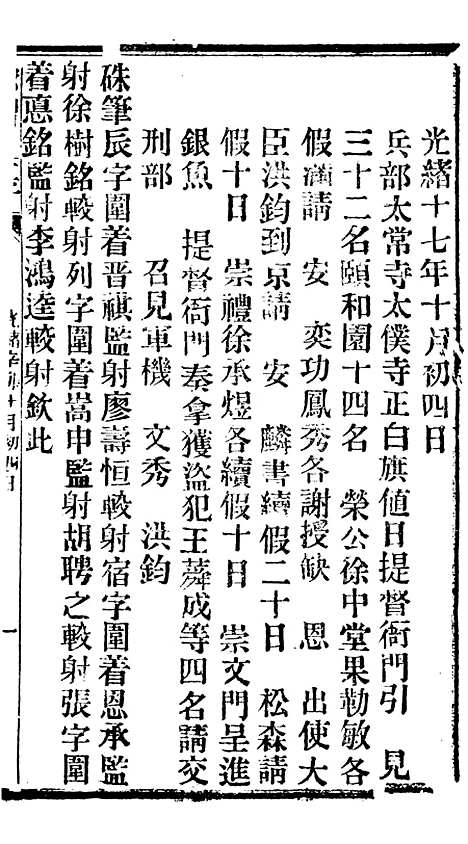 光緒十七年十月初四日
兵部太常寺太僕寺正白旗値日提督衙門引　見
三十二名頤和園十四名　榮公徐中堂果勒敏各
假滿請　安　奕功鳳秀各謝授缺　恩　出使大
臣洪鈞到京請　安　麟書續假二十日　松森請
假十日　崇禮徐承煜各續假十日　崇文門呈進
銀魚　提督衙門奏拿獲盜犯王蕣成等四名請交
刑部　召見軍機　文秀　洪鈞
硃筆辰字圍着晋祺監射廖壽恒較射宿字圍着恩承監
射徐樹銘較射列字圍着嵩申監射胡聘之較射張字圍
着憙銘監射李鴻逵較射欽此
光緒辛卯十月初四日
一